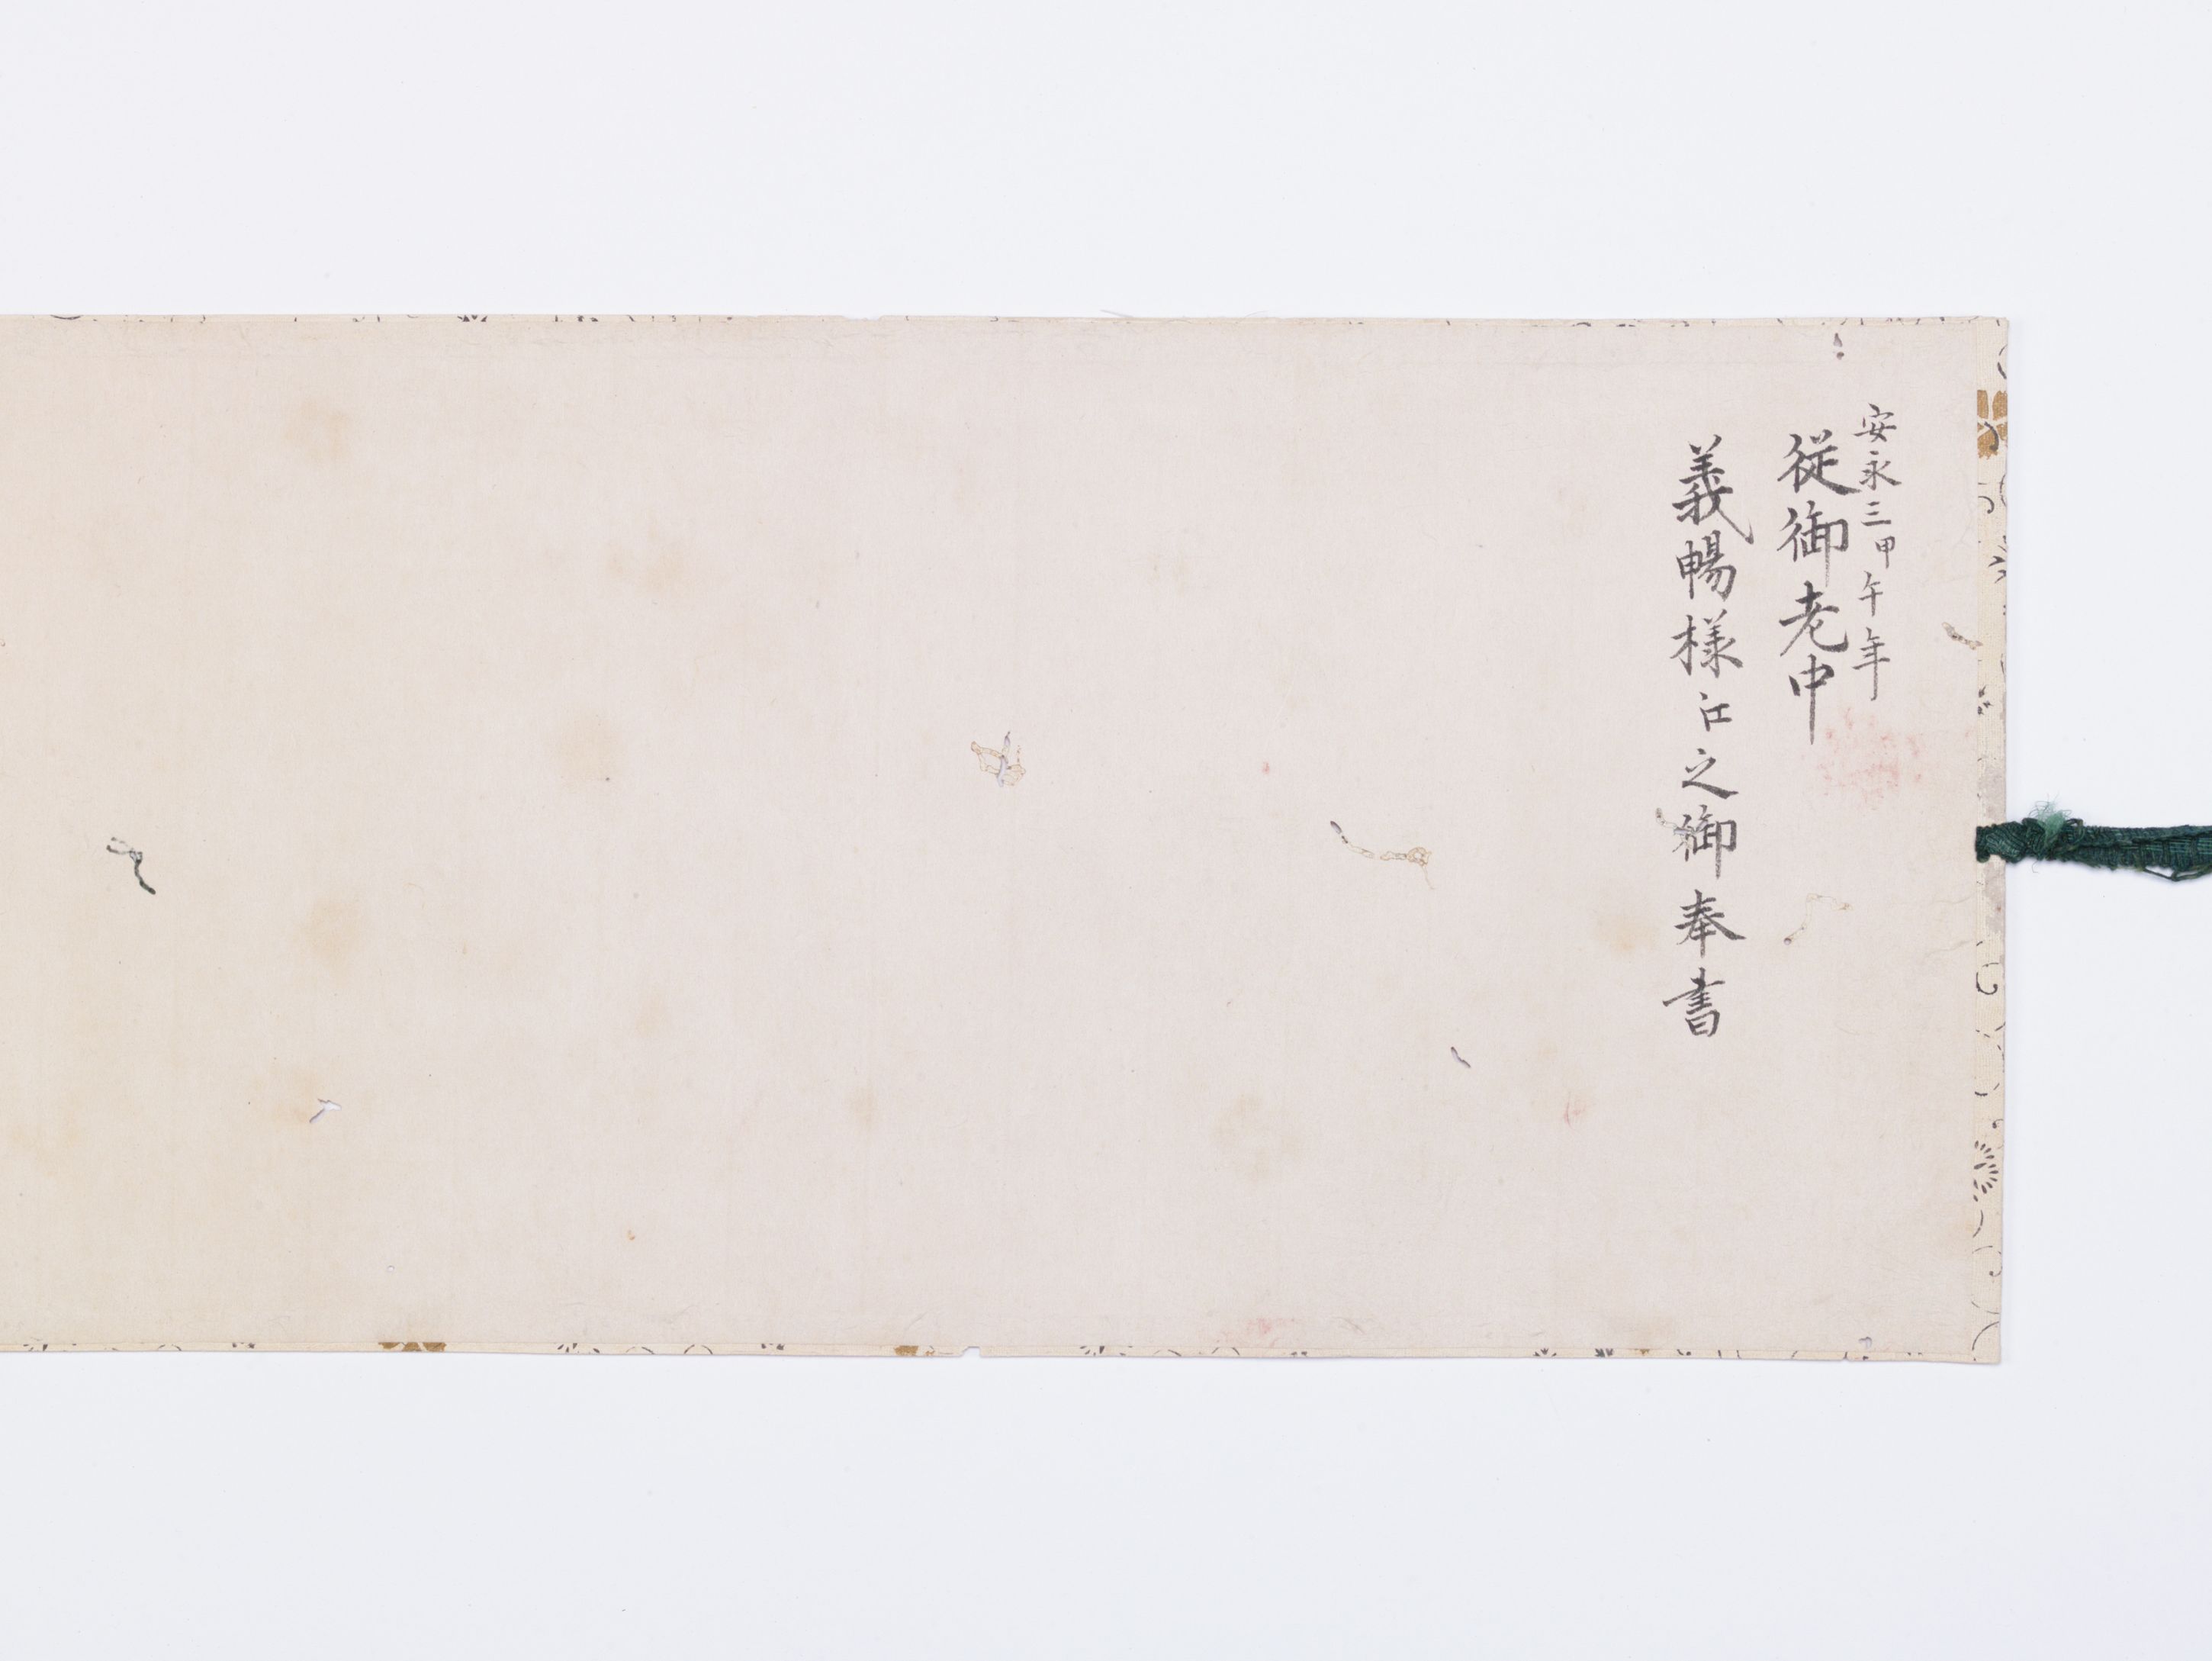 安永三甲午年
従御老中
義暢様江之御奉書